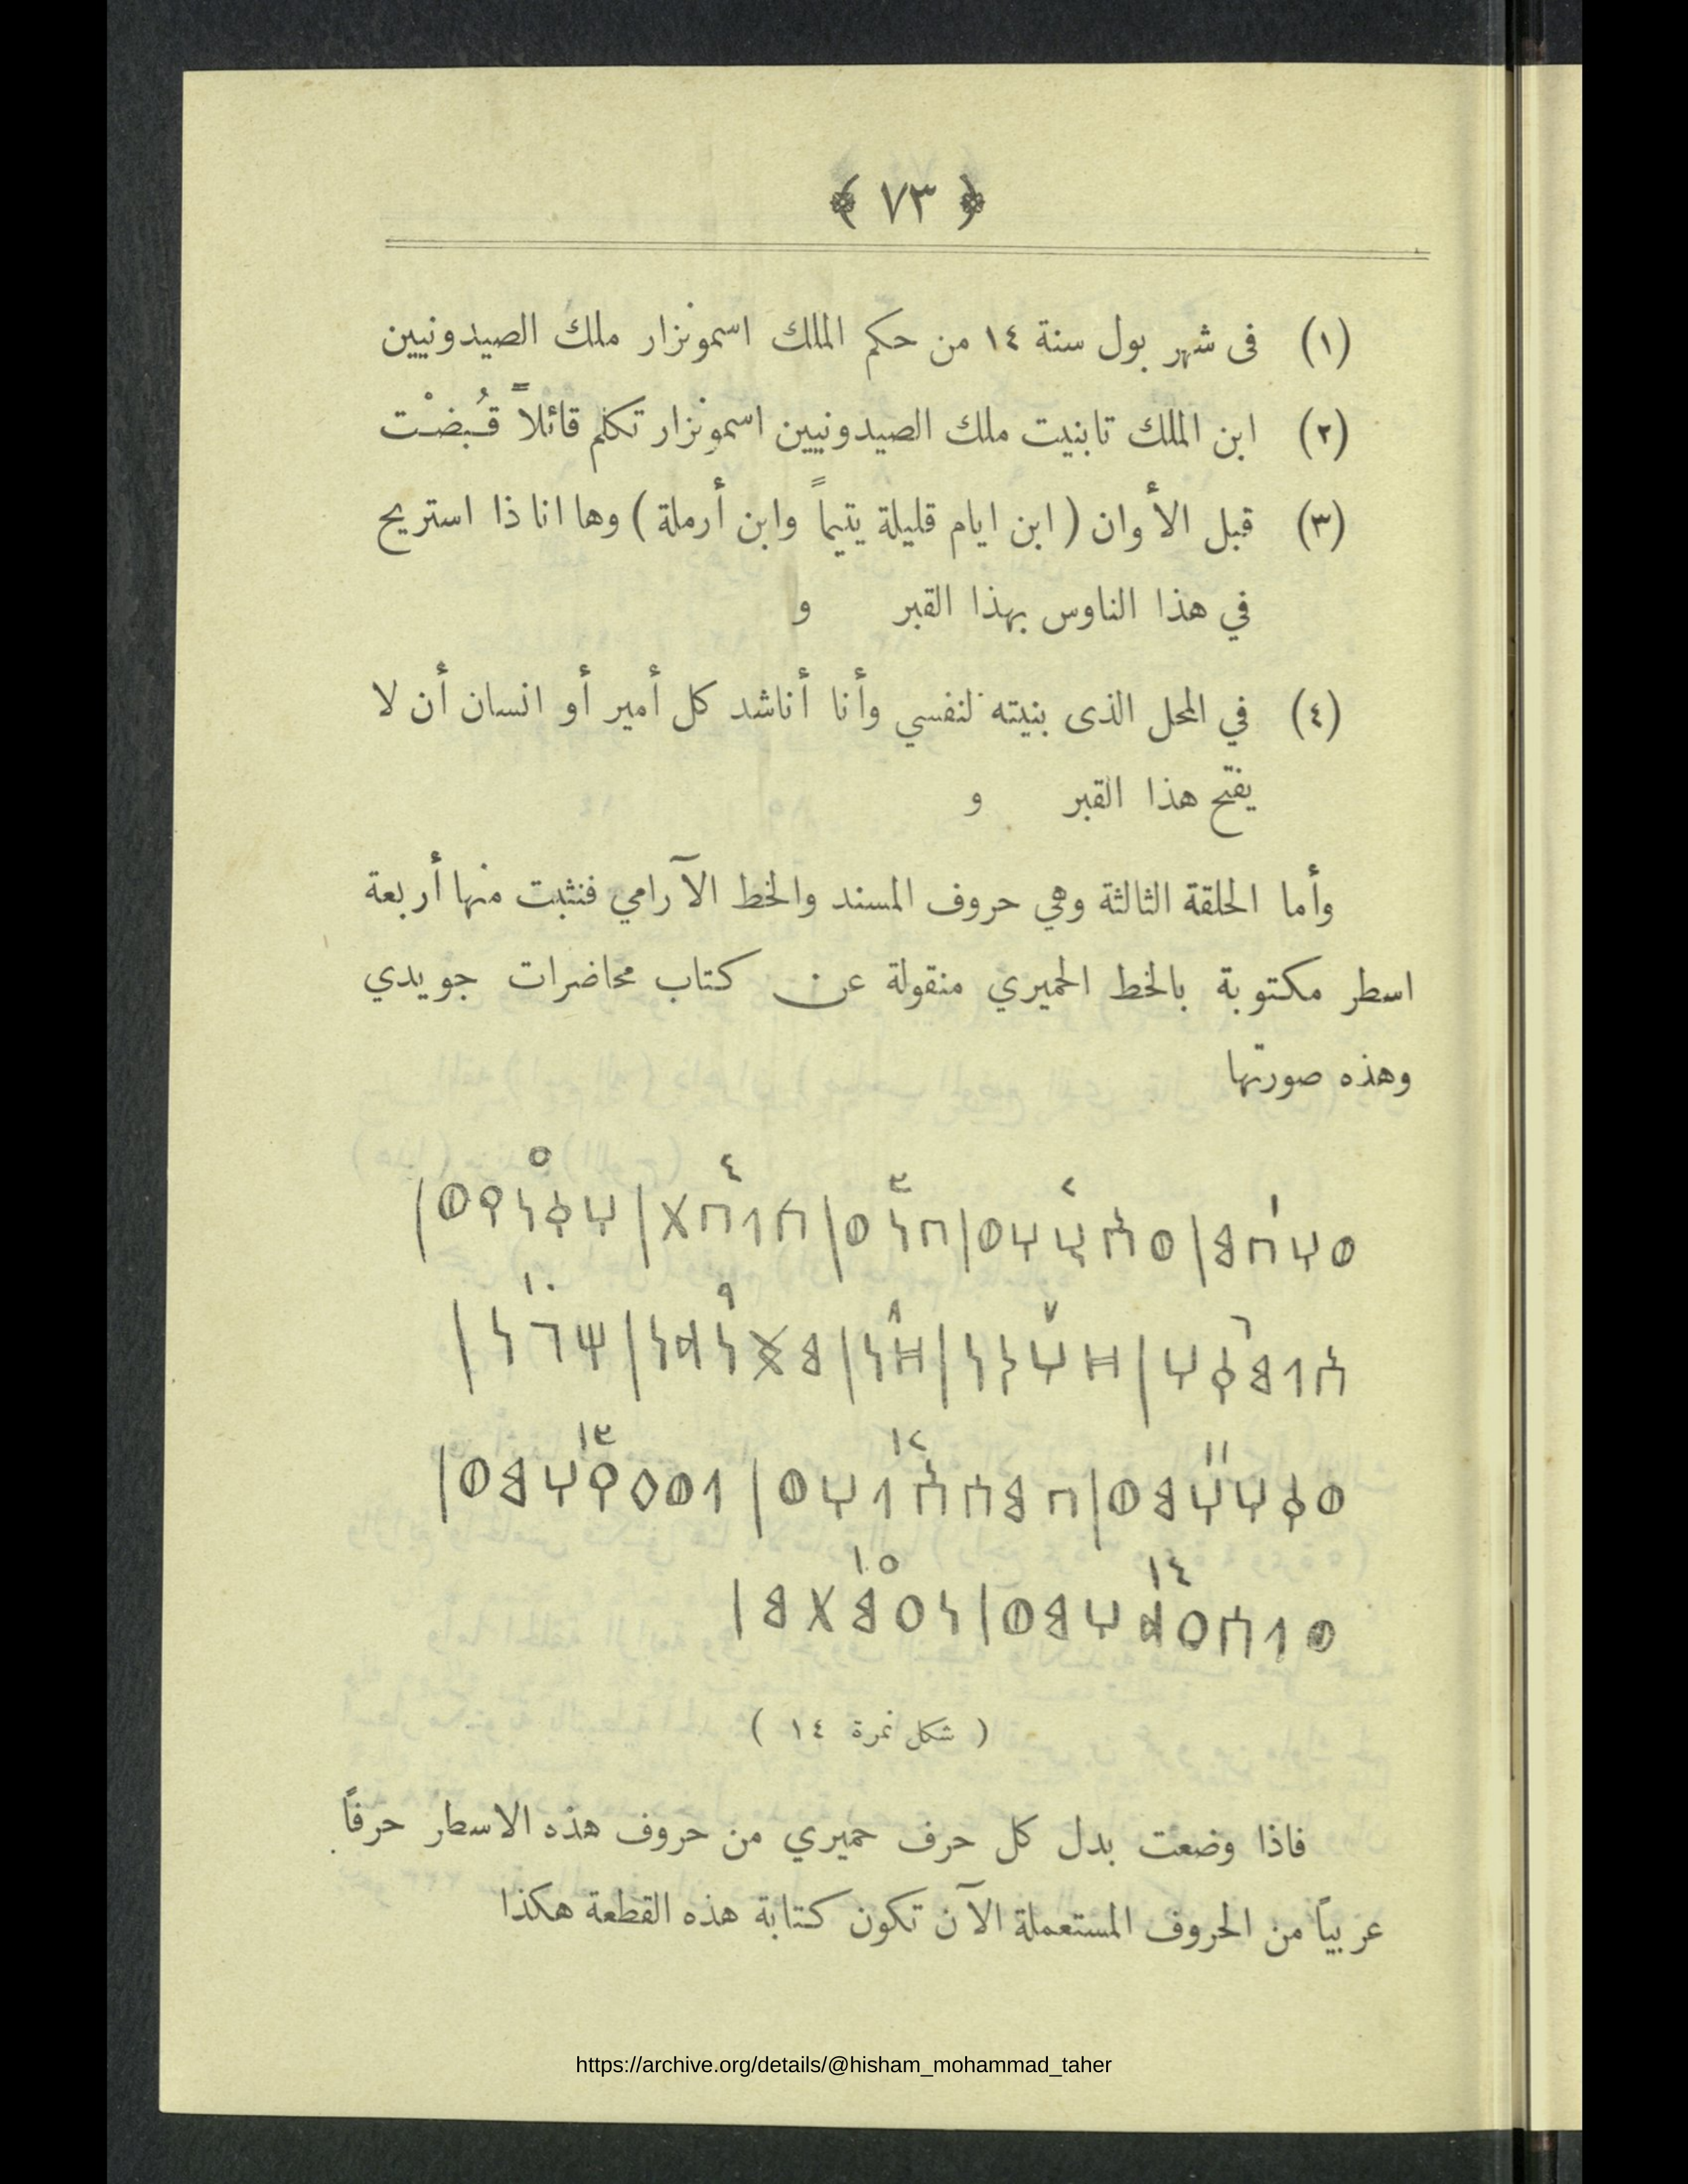 ﴿ ٧٣ ﴾
(١) فى شهر بول سنة ١٤ من حكم الملك اسمونزار ملك الصيدونيين
(٢) ابن الملك تابنيت ملك الصيدونيين اسمونزار تكلم قائلاً قُبضْت
(٣) قبل الأوان ( ابن ايام قليلة يتيماً وابن أرملة ) وها انا ذا استريح
في هذا الناوس بهذا القبر و
(٤) في المحل الذى بنيته لنفسي وأنا أناشد كل أمير أو انسان أن لا
يفتح هذا القبر و
وأما الحلقة الثالثة وهي حروف المسند والخط الآرامي فنثبت منها أربعة
اسطر مكتوبة بالخط الحميري منقولة عن كتاب محاضرات جويدي
وهذه صورتها
١ ٢ ٣ ٤ ٥
٦ ٧ ٨ ٩ ١٠
١١ ١٢ ١٣
١٤ ١٥
( شكل نمرة ١٤ )
فاذا وضعت بدل كل حرف حميري من حروف هذه الاسطر حرفاً
عربياً من الحروف المستعملة الآن تكون كتابة هذه القطعة هكذا
https://archive.org/details/@hisham_mohammad_taher